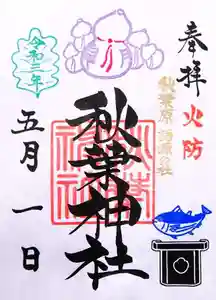 奉拝
火防
秋葉原
秋葉神社
令和二年
五月一日